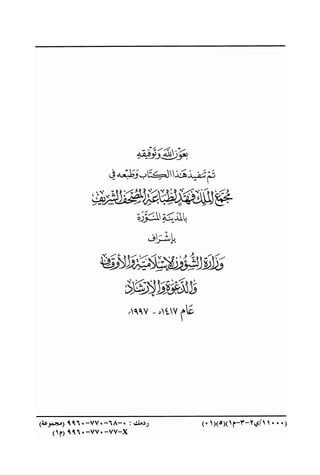 بعون الله وتوفيقه
تم تنفيذ هذا الكتاب وطبعه في
مجمع الملك فهد لطباعة المصحف الشريف
بالمدينة المنورة
بإشراف
وزارة الشؤون الإسلامية والأوقاف
والدعوة والإرشاد
عام ١٤١٧هـ - ١٩٩٧م
(١١٠٠٠/ي٢-٣-م١)(٥)(٠١)
ردمك : ٠-٦٨-٧٧٠-٩٩٦٠ (مجموعة)
X-٧٧-٧٧٠-٩٩٦٠ (م١)